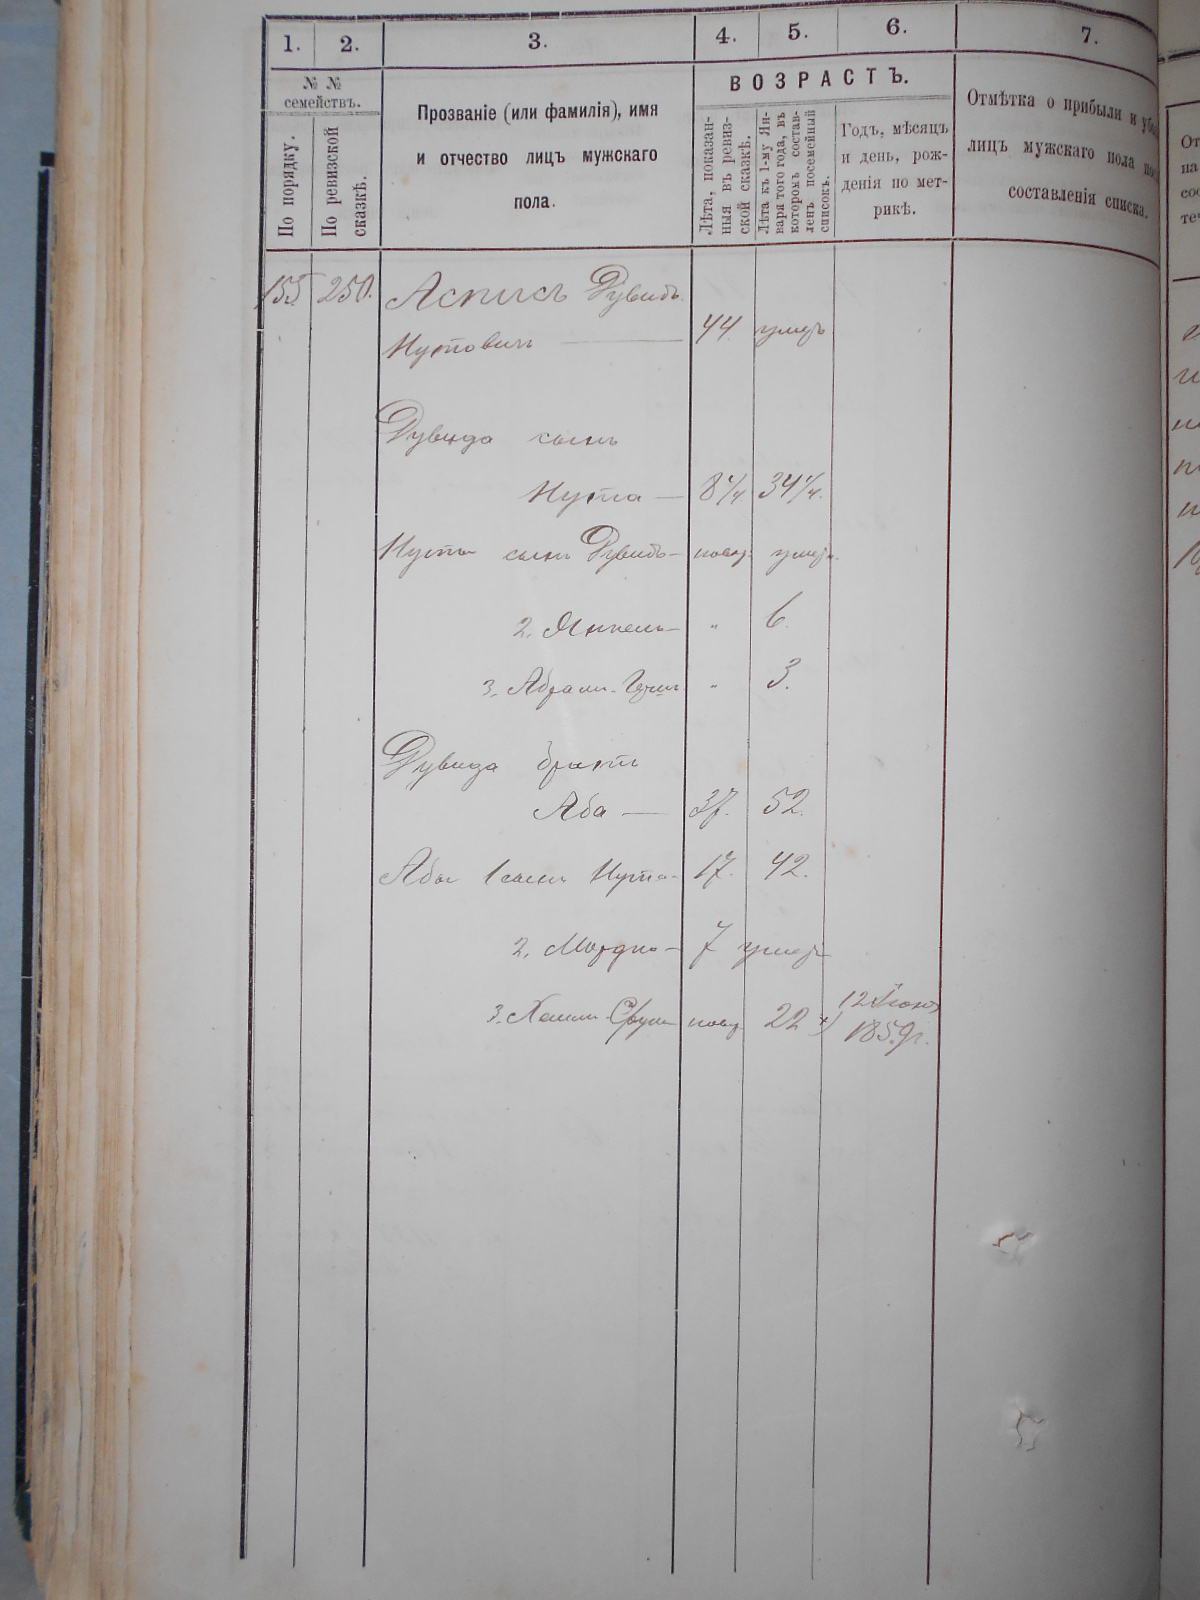 1. 2. 3. 4. 5. 6. 7.
№ №
семействъ.
По порядку.
По ревизской
сказкѣ.
Прозваніе (или фамилія), имя
и отчество лицъ мужскаго
пола.
ВОЗРАСТЪ.
Лѣта, показан-
ныя въ ревиз-
ской сказкѣ.
Лѣта къ 1-му Ян-
варя того года, въ
которомъ состав-
ленъ посемейный
списокъ.
Годъ, мѣсяцъ
и день, рож-
денія по мет-
рикѣ.
Отмѣтка о прибыли и
лицъ мужскаго пола
составленія списка.
155 250. Асписъ Дувидъ
Нутовичъ 44. умеръ
Дувида сынъ
Нута — 8¼ 34¼.
Нуты сынъ Дувидъ — новор. умеръ.
2. Янкель — " 6.
3. Абрамъ " 3.
Дувида братъ
Аба — 37. 52.
Абы 1 сынъ Нута — 17. 42.
2. Мордко — 7 умеръ
3. новор 22 *) 12
1859г.